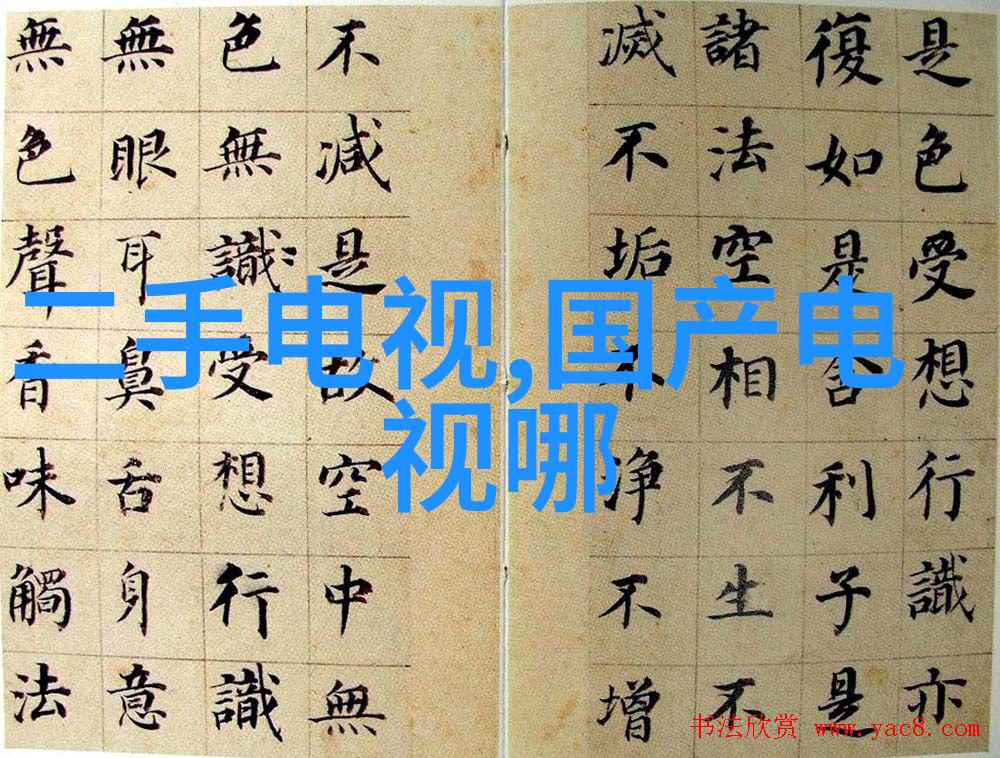 是色受想行識亦
復如是舍利子是
諸法空相不生不
滅不垢不净不增
不減是故空中無
色無識受想行識
無眼耳鼻舌身意
無色聲香味觸法
二手电视,国产电
视哪
书法欣赏 www.yac8.com